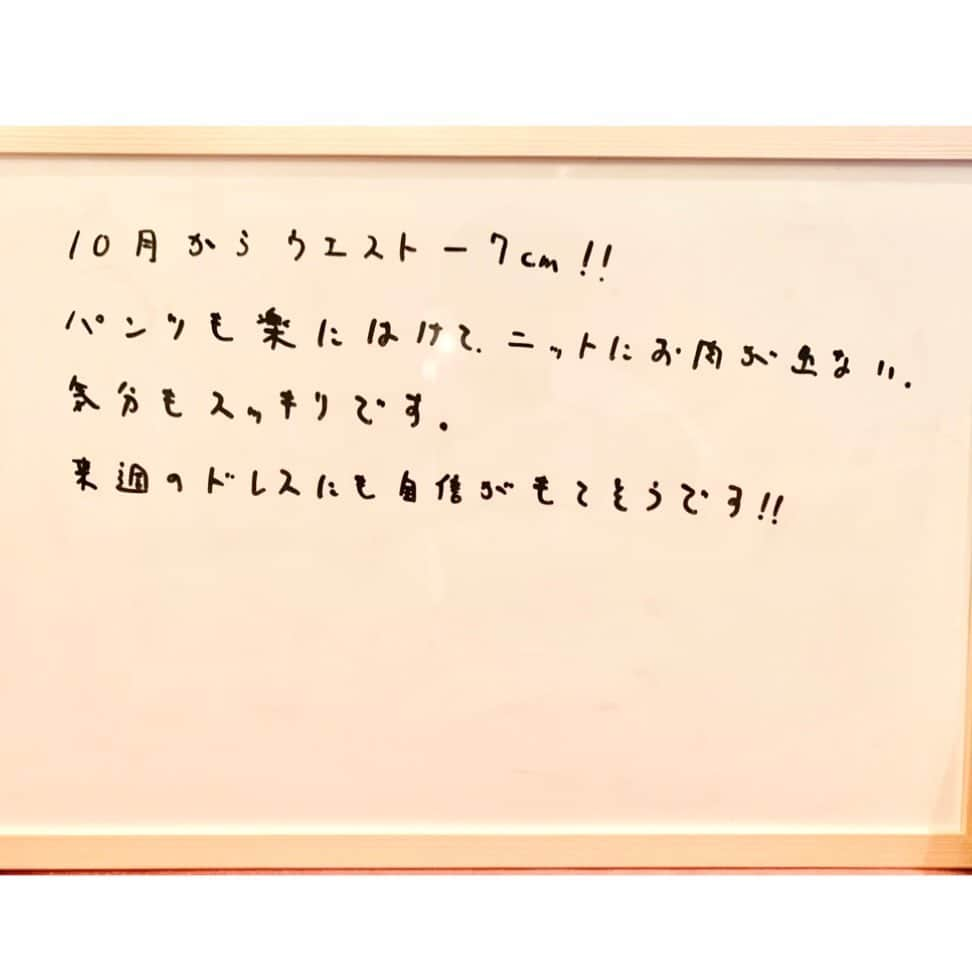 10月からウエスト－7cm!!
パンツも楽にはけて、ニットにお肉が出ない。
気分もスッキリです。
来週のドレスにも自信がもてそうです!!